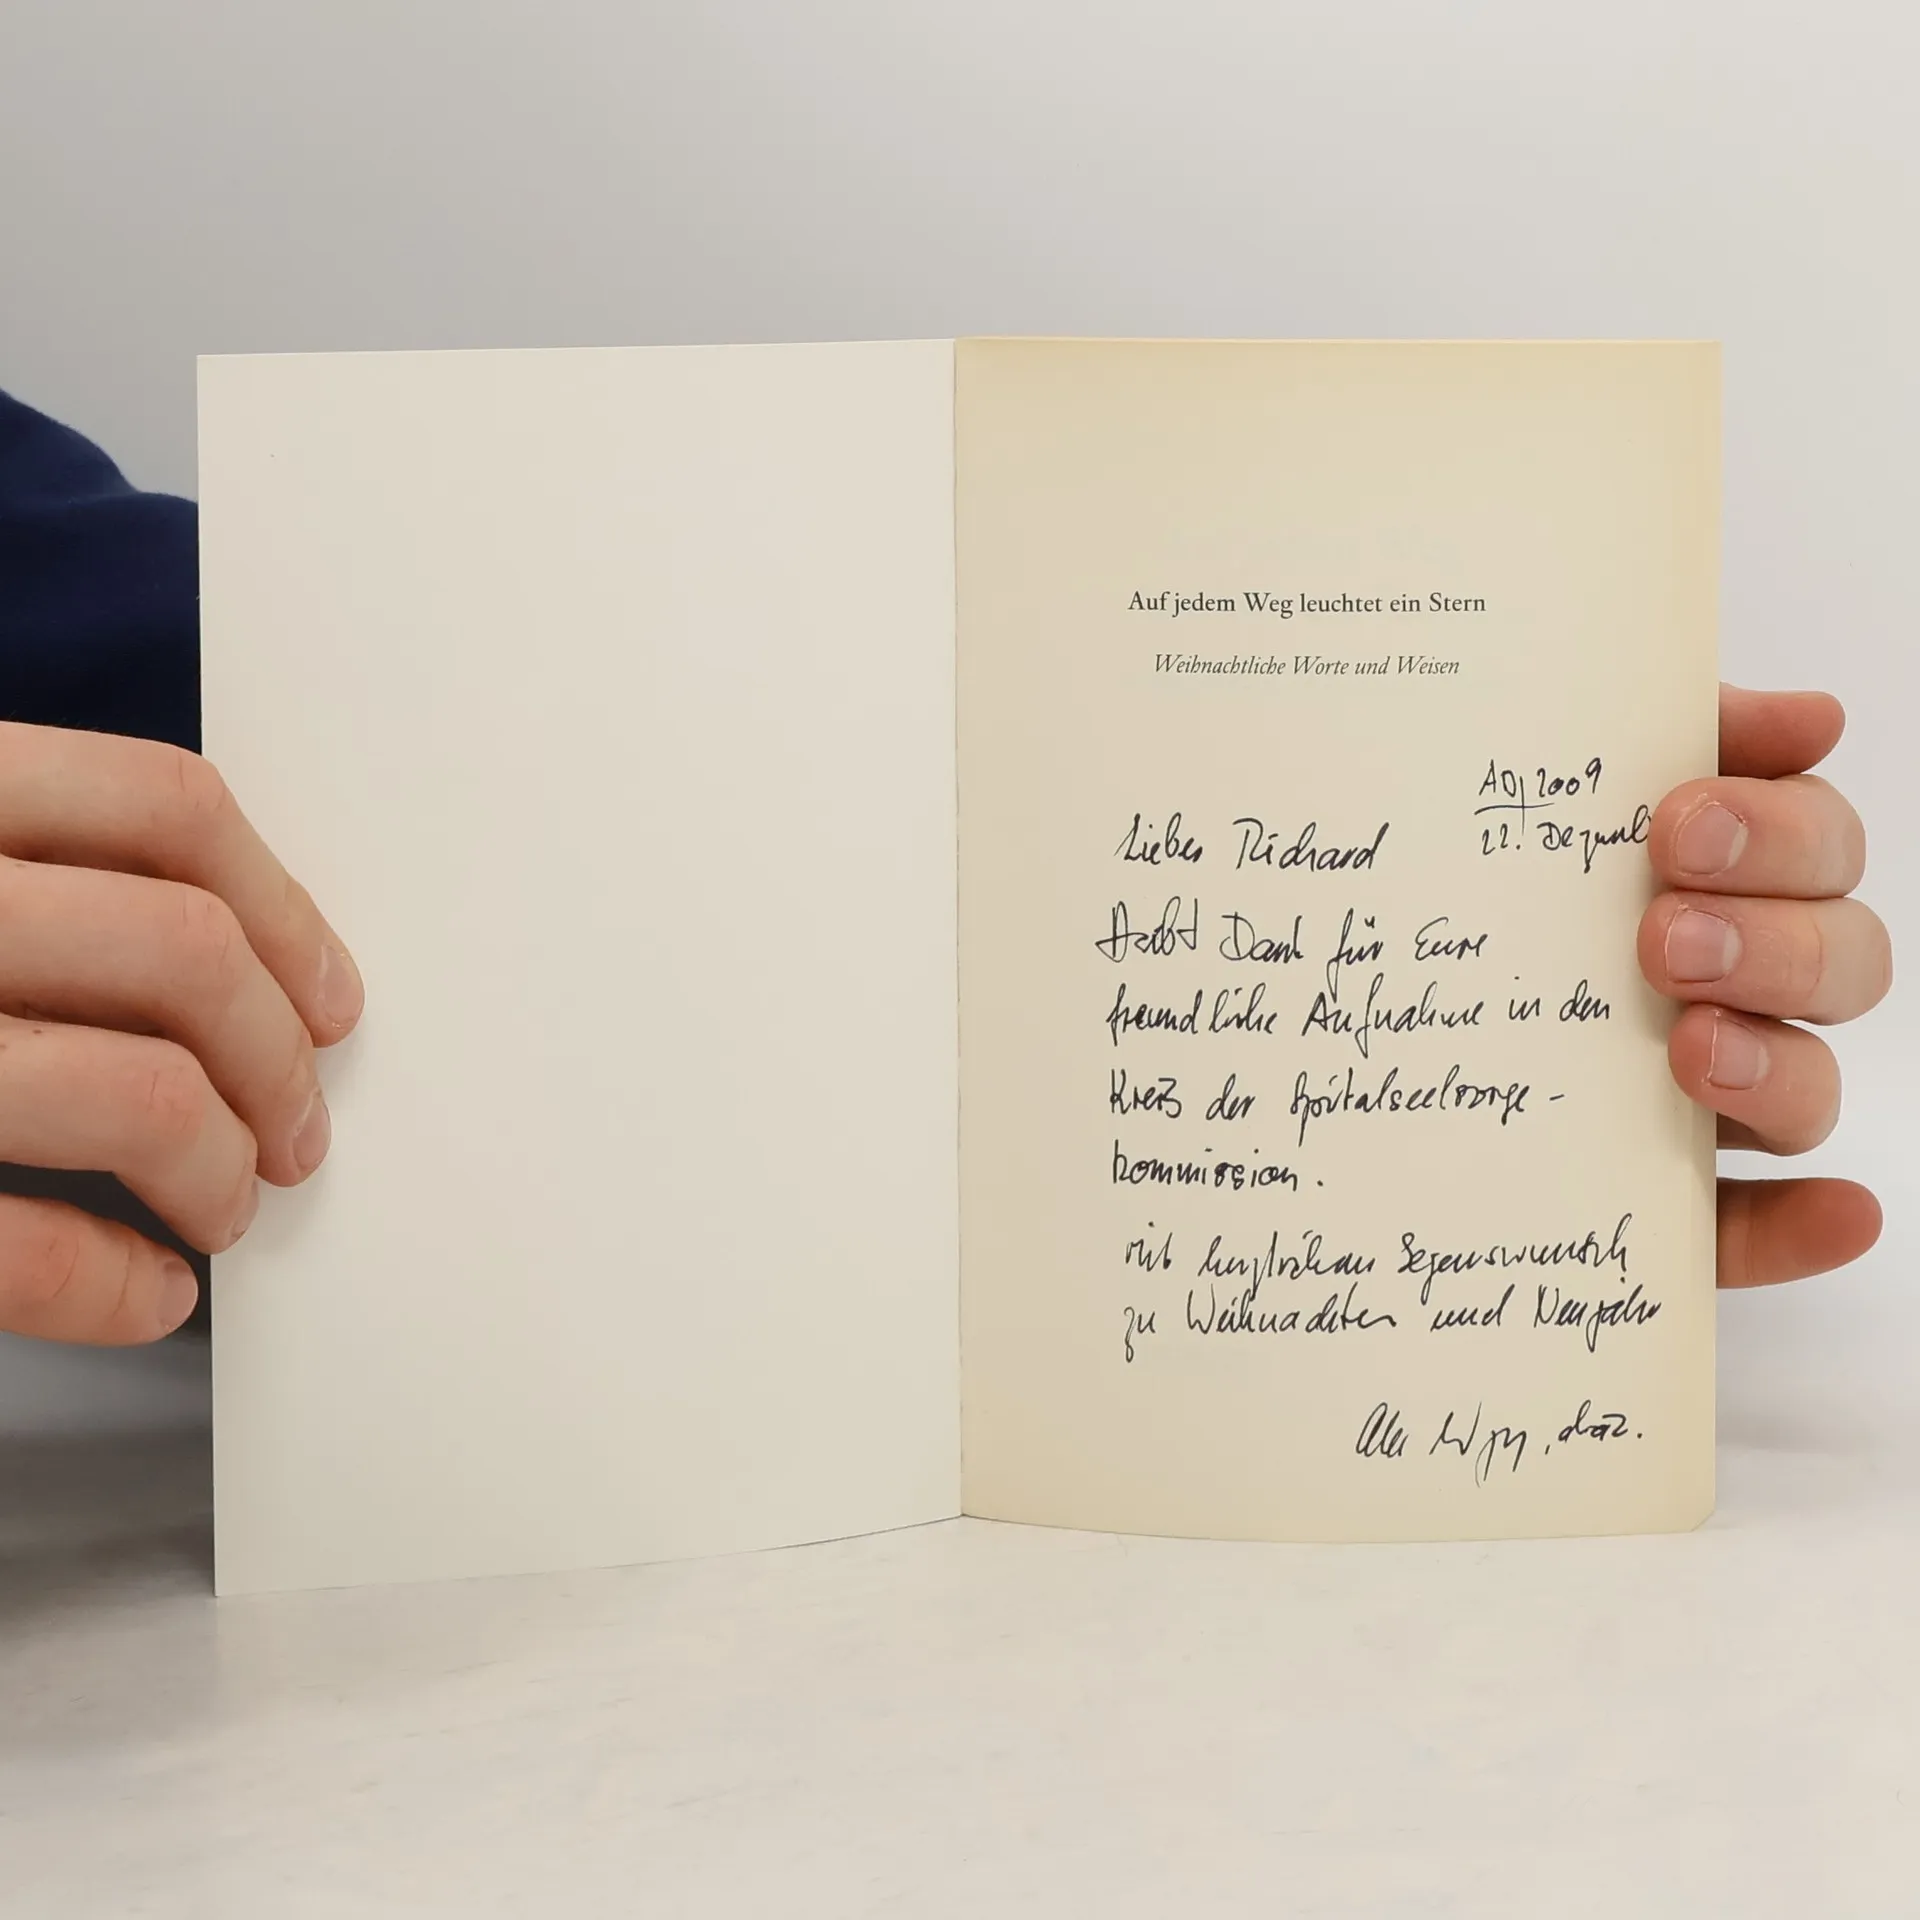 Auf jedem Weg leuchtet ein Stern
Weihnachtliche Worte und Weisen
AD 2009
22. Dezemb
Lieber Richard
Habt Dank für Eure
freundliche Aufnahme in den
Kreis der Spitalseelsorge-
kommission.
mit herzlichem Segenswunsch
zu Weihnachten und Neujahr